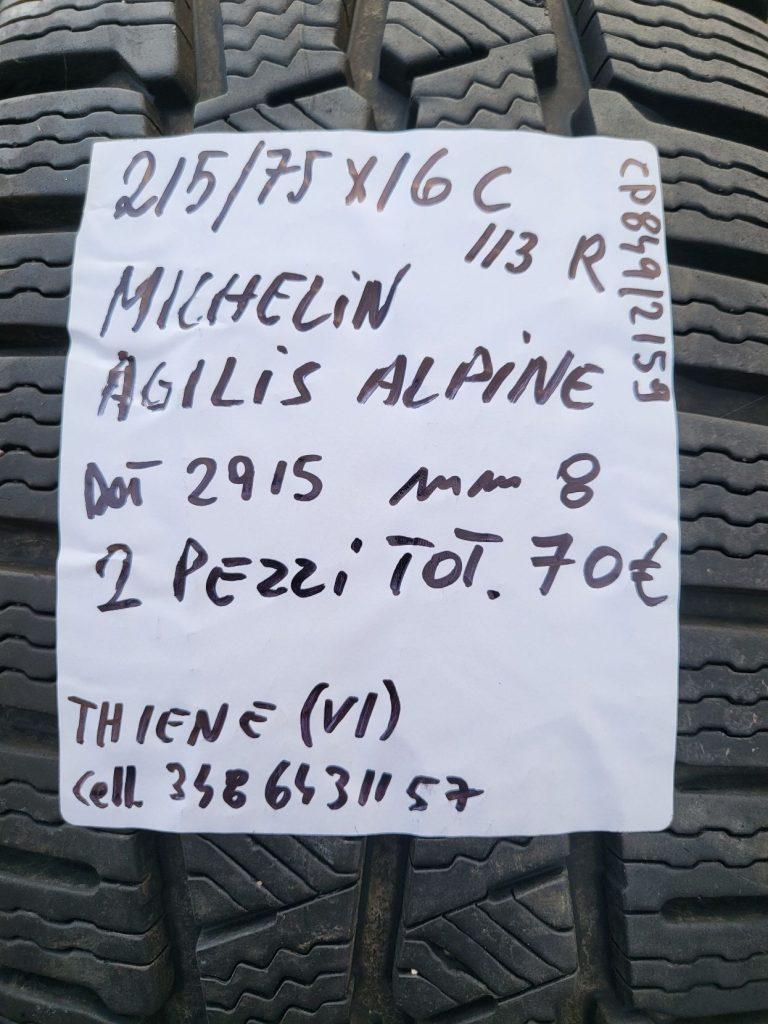 215/75 X 16 C
113 R
MICHELIN
AGILIS ALPINE
DOT 2915 mm 8
2 PEZZI TOT. 70€
THIENE (VI)
Cell. 3486431157
CP849/2159